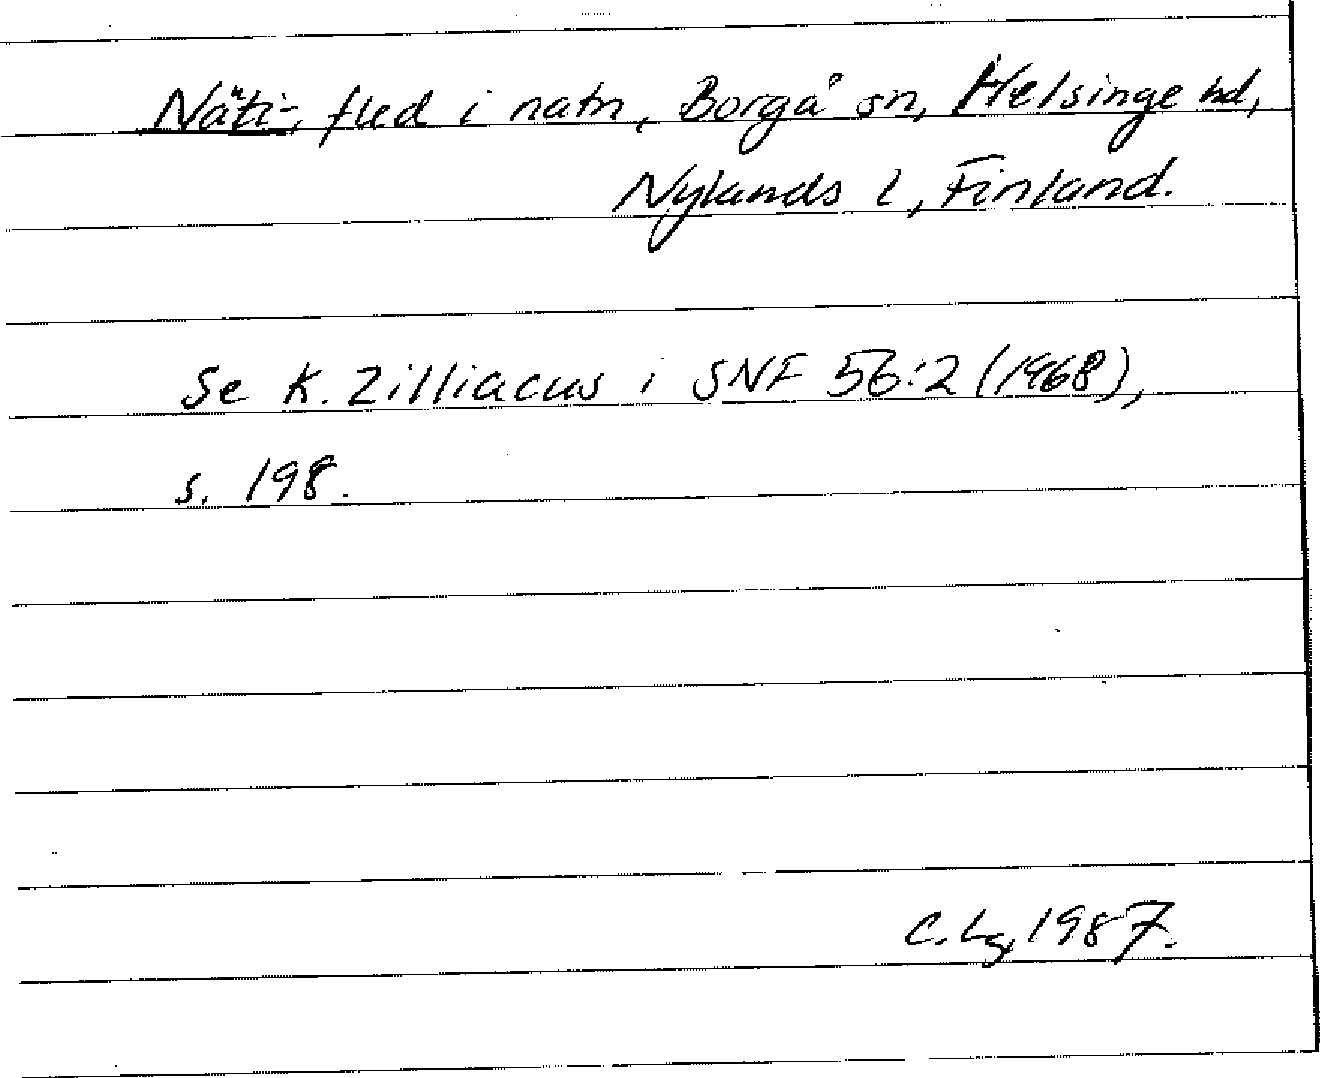 Näti-, fled i natn, Borgå sn, Helsinge hd,
Nylands l, Finland.
Se K. Zilliacus i SNF 56:2 (1968),
s. 198.
C. Lg, 1987.